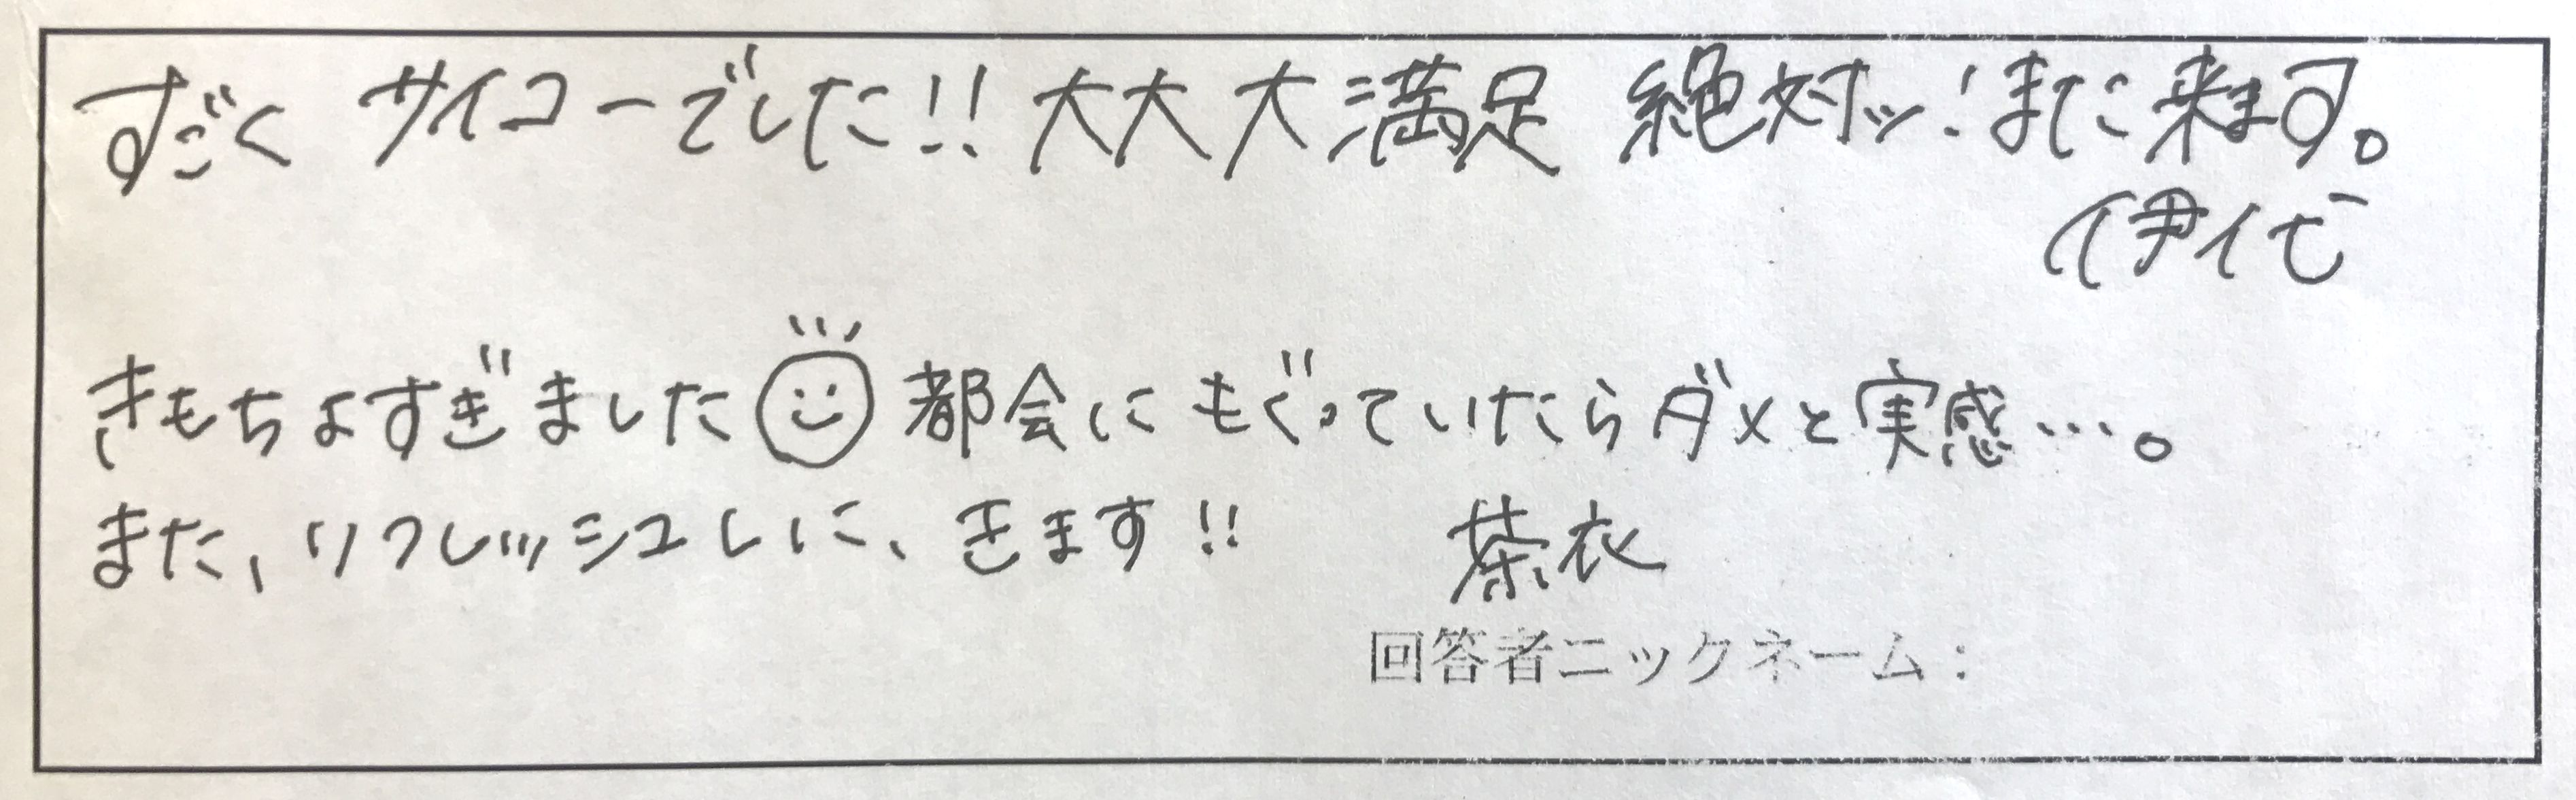 すごく サイコーでした!! 大大大満足 絶対ッ!また来ます。
伊代
きもちよすぎました 都会にもぐっていたらダメと実感…。
また、リフレッシュしに、きます!!
茶衣
回答者ニックネーム: